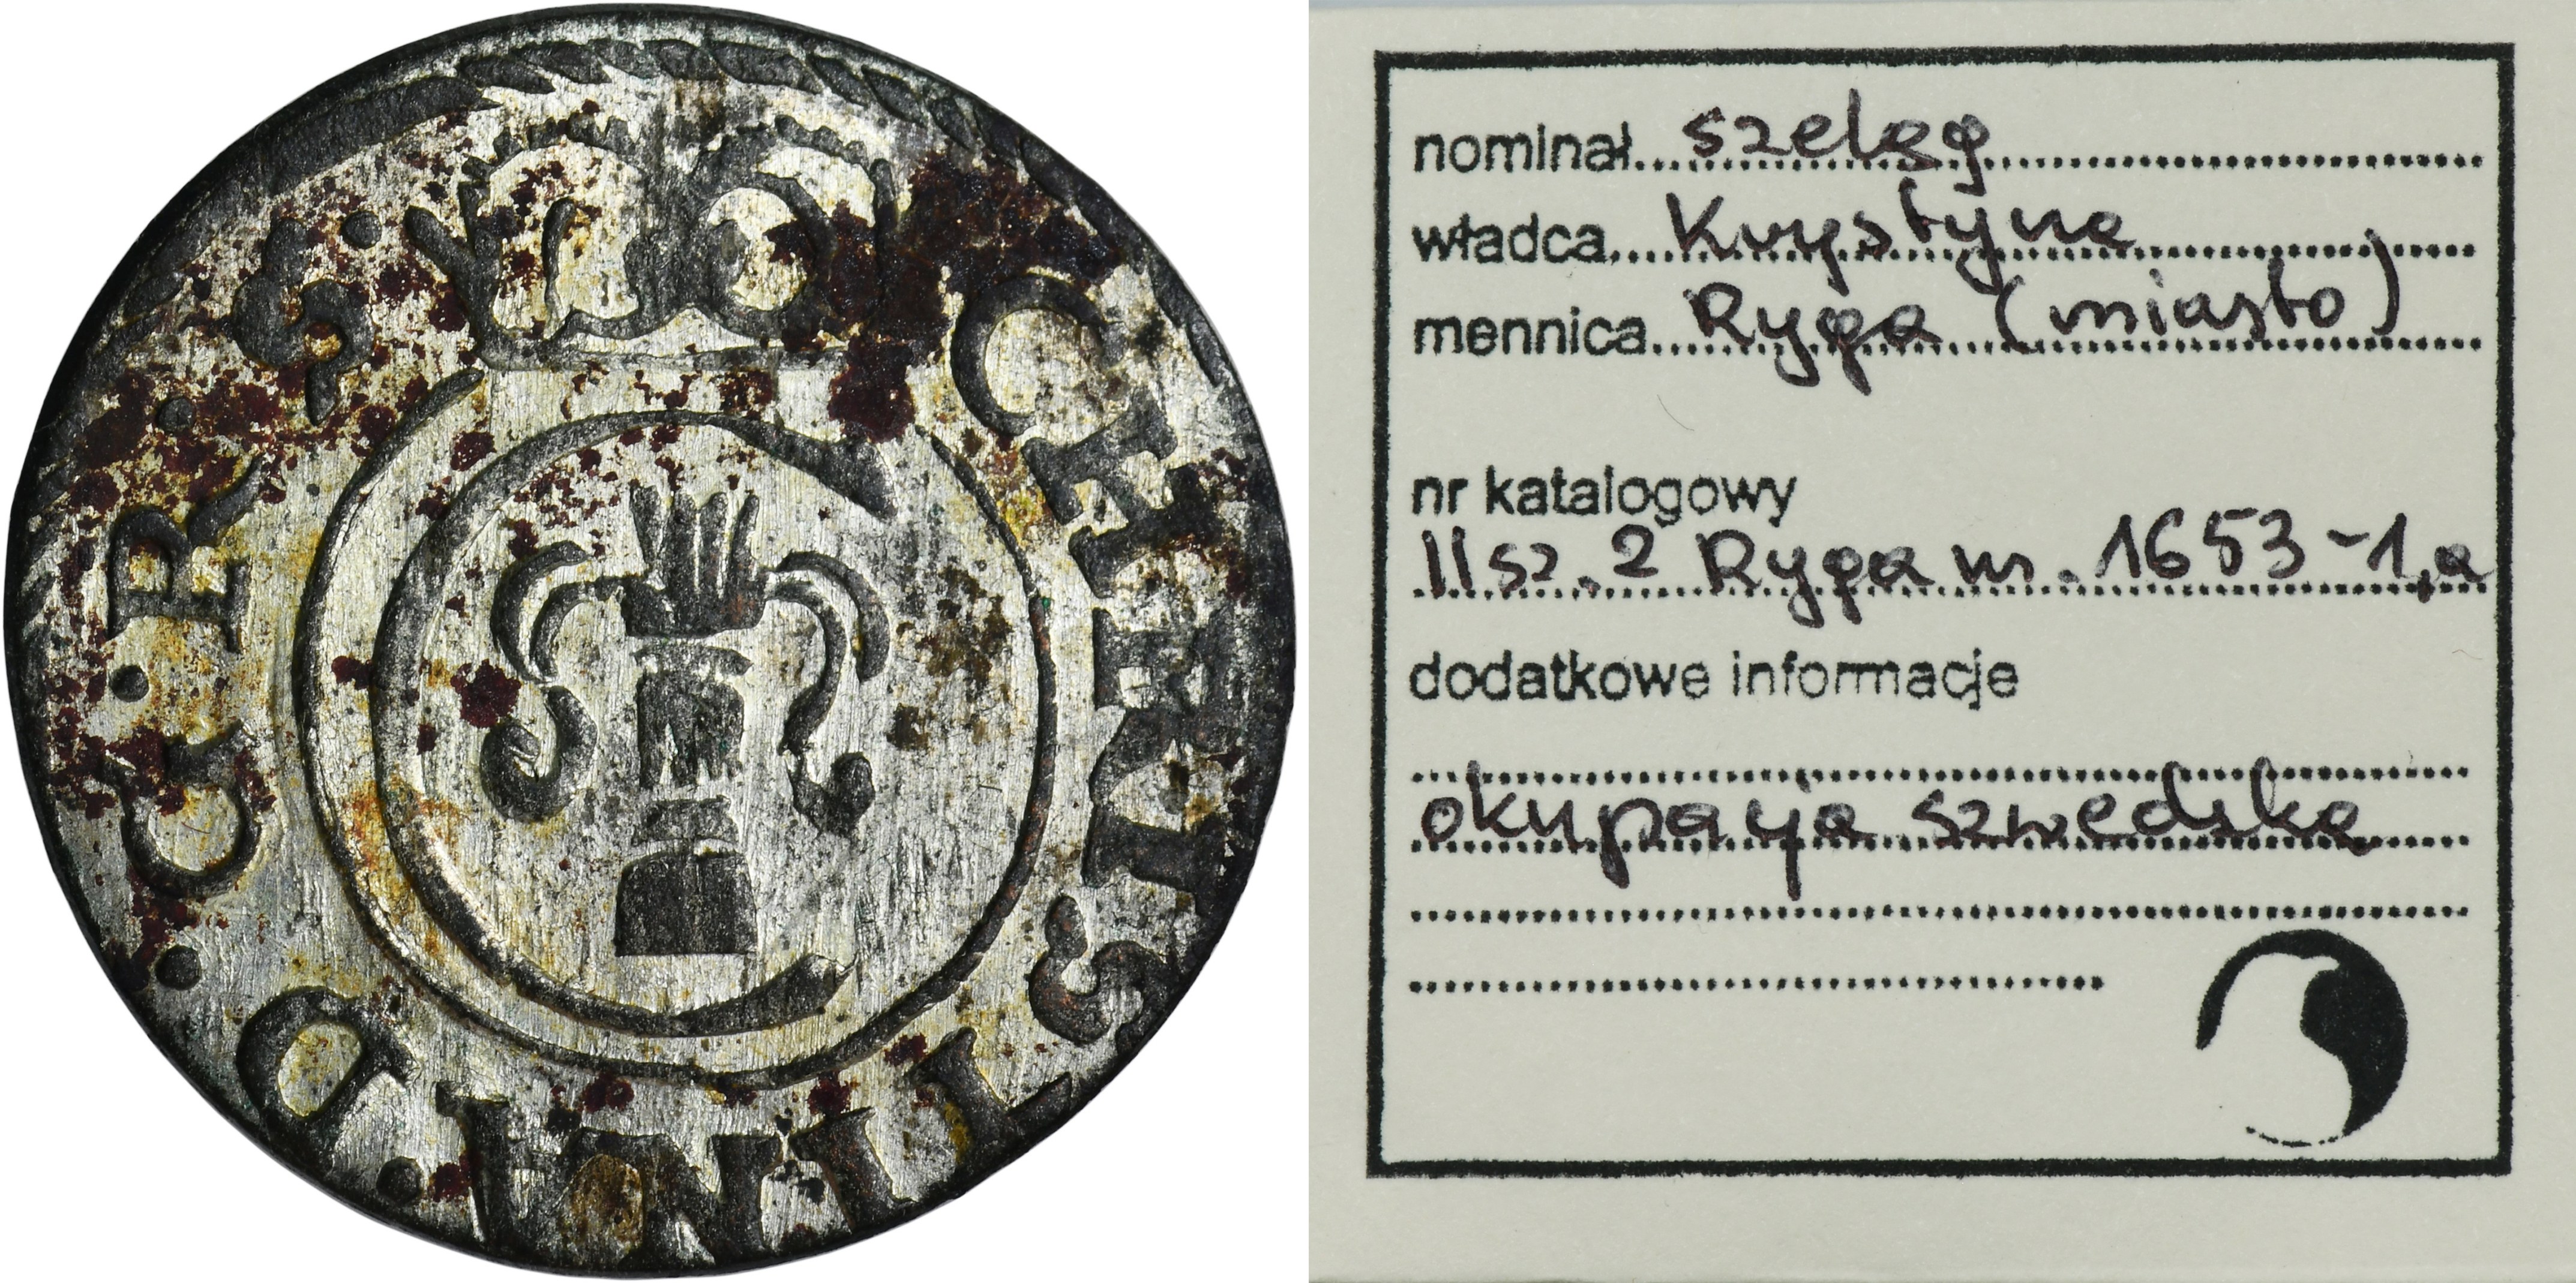 CHRISTINA·D·G·R·S·
nominał szeląg
władca Krystyna
mennica Ryga (miasto)
nr katalogowy
II sz. 2 Ryga m. 1653-1,a
dodatkowe informacje
okupacja szwedzka